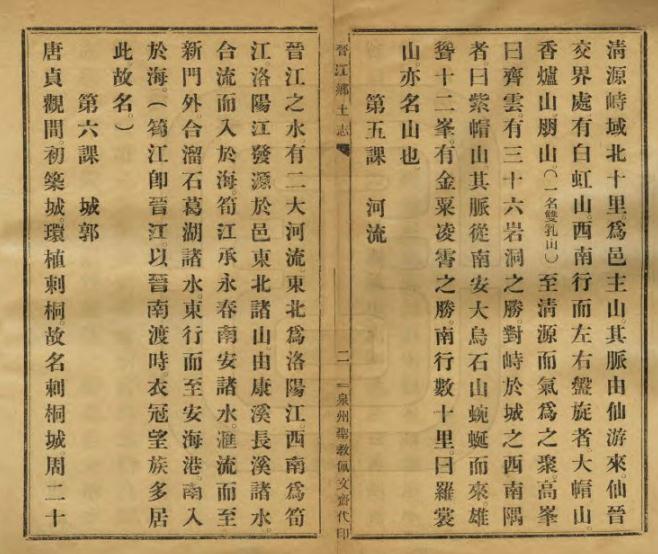 清源峙城北十里爲邑主山其脈由仙游來仙晉
交界處有白虹山。西南行而左右盤旋者。大帽山。
香爐山朋山。(一名雙乳山)至清源而氣爲之聚。高峯
曰齊雲。有三十六岩洞之勝。對峙於城之西南隅
者曰紫帽山其脈從南安大烏石山蜿蜒而來雄
聳十二峯。有金粟凌霄之勝。南行數十里。曰羅裳
山。亦名山也
第五課 河流
晉江鄉土志
二
泉州聖教佩文齋代印
晉江之水有二大河流。東北爲洛陽江。西南爲筍
江。洛陽江發源於邑東北諸山由康溪長溪諸水。
合流而入於海。筍江承永春南安諸水。滙流而至
新門外。合溜石葛湖諸水。東行而至安海港。南入
於海。(筍江卽晉江。以晉南渡時。衣冠望族多居
此故名。)
第六課 城郭
唐貞觀間初築城。環植刺桐。故名刺桐城周二十